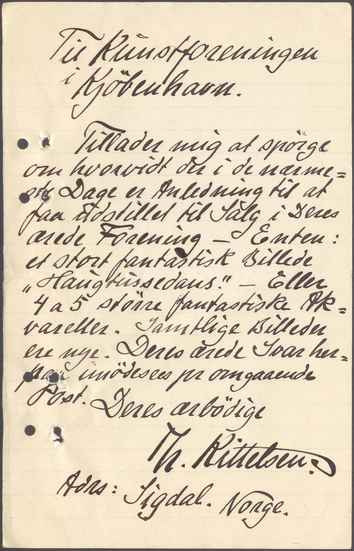 Til Kunstforeningen
i Kjöbenhavn.
Tillader mig at spörge
om hvorvidt der i de nærme=
ste Dage er Anledning til at
faa udstillet til Salg i Deres
ærede Forening — Enten:
et stort fantastisk Billede
„Haugtussedans." — Eller
4 a 5 större fantastiske Ak=
vareller. Samtlige Billeder
ere nye. Deres ærede Svar her=
paa imödesees pr omgaaende
Post.
Deres ærbödige
Th. Kittelsen.
Adrs: Sigdal. Norge.